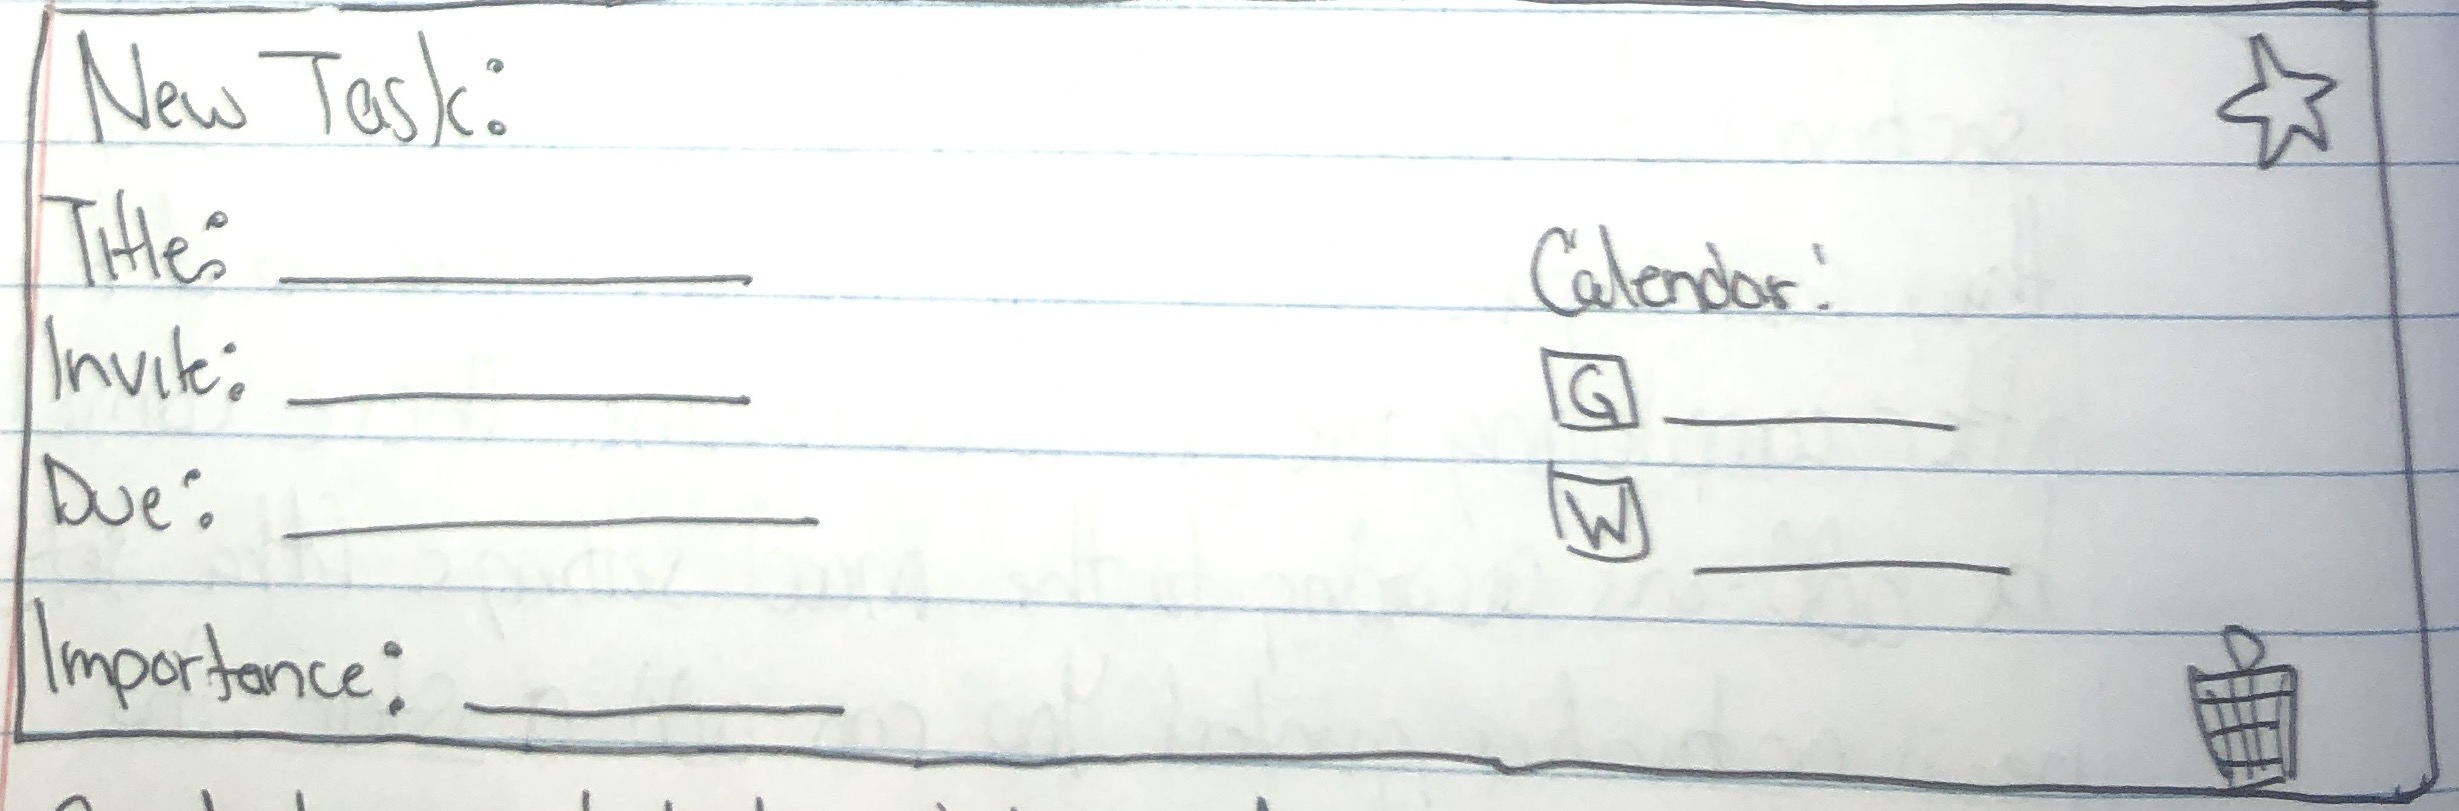 New Task:
Title:
Invite:
Due:
Importance:
Calendar:
G
W